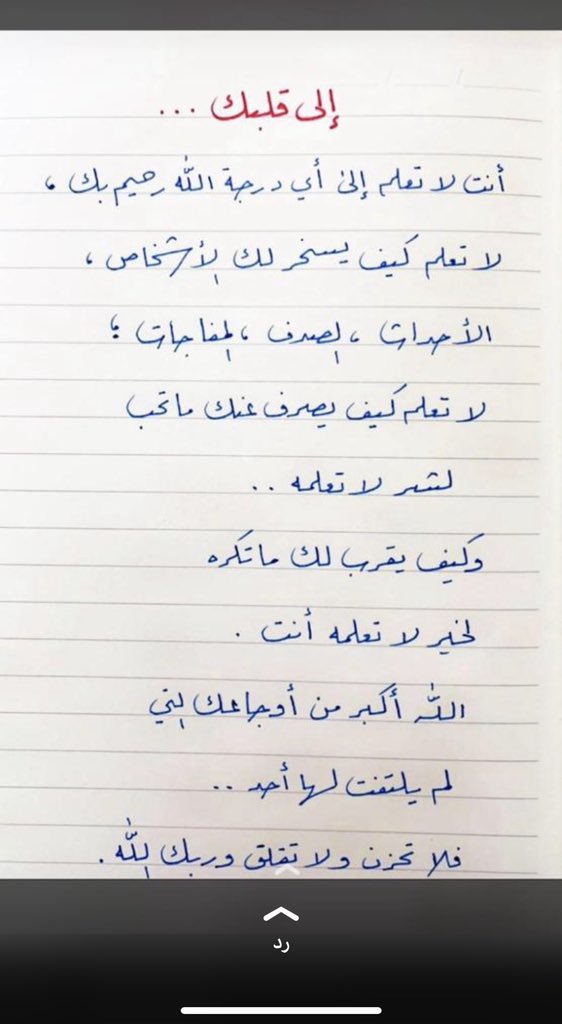 إلى قلبك ...
أنت لا تعلم إلى أي درجة الله رحيم بك ،
لا تعلم كيف يسخر لك الأشخاص ،
الأحداث ، الصدف ، المفاجآت ؛
لا تعلم كيف يصرف عنك ما تحب
لشر لا تعلمه ..
وكيف يقرب لك ما تكره
لخير لا تعلمه أنت .
الله أكبر من أوجاعك التي
لم يلتفت لها أحد ..
فلا تحزن ولا تقلق وربك الله .
رد